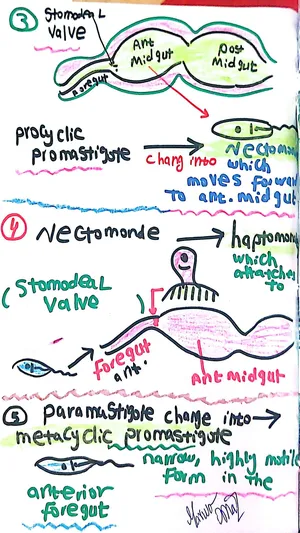 ③
Stomodeal
valve
Ant
midgut
post
Midgut
foregut
procyclic
promastigote
chang into
Nectomonde
which
moves forwa
To ant. midgut
④ Nectomonde
haptomon
which
attatches
to
(Stomodeal
valve)
foregut
ant.
Ant midgut
⑤ paramastigote change into
metacyclic promastigote
narrow, highly motile
form in the
anterior
foregut